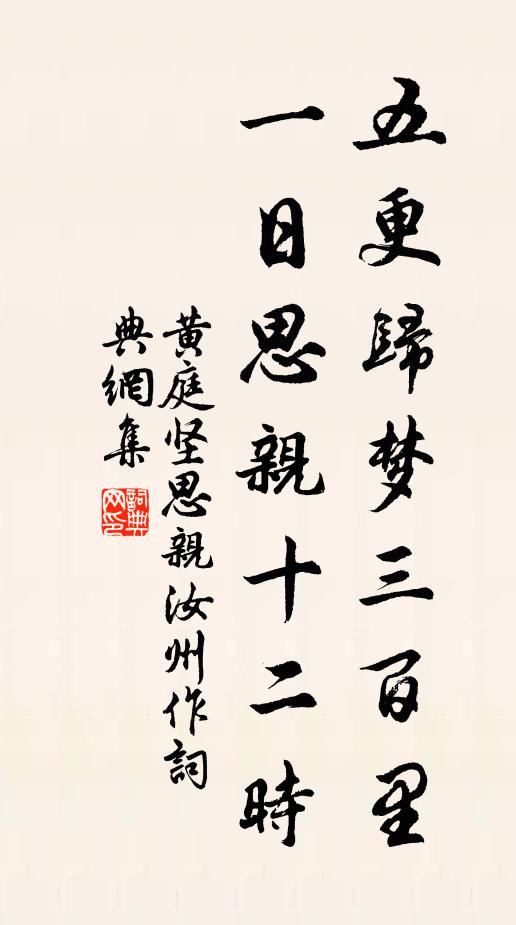 五更歸梦三百里
一日思親十二時
黄庭坚思親汝州作詞
典網集
詞典
网印